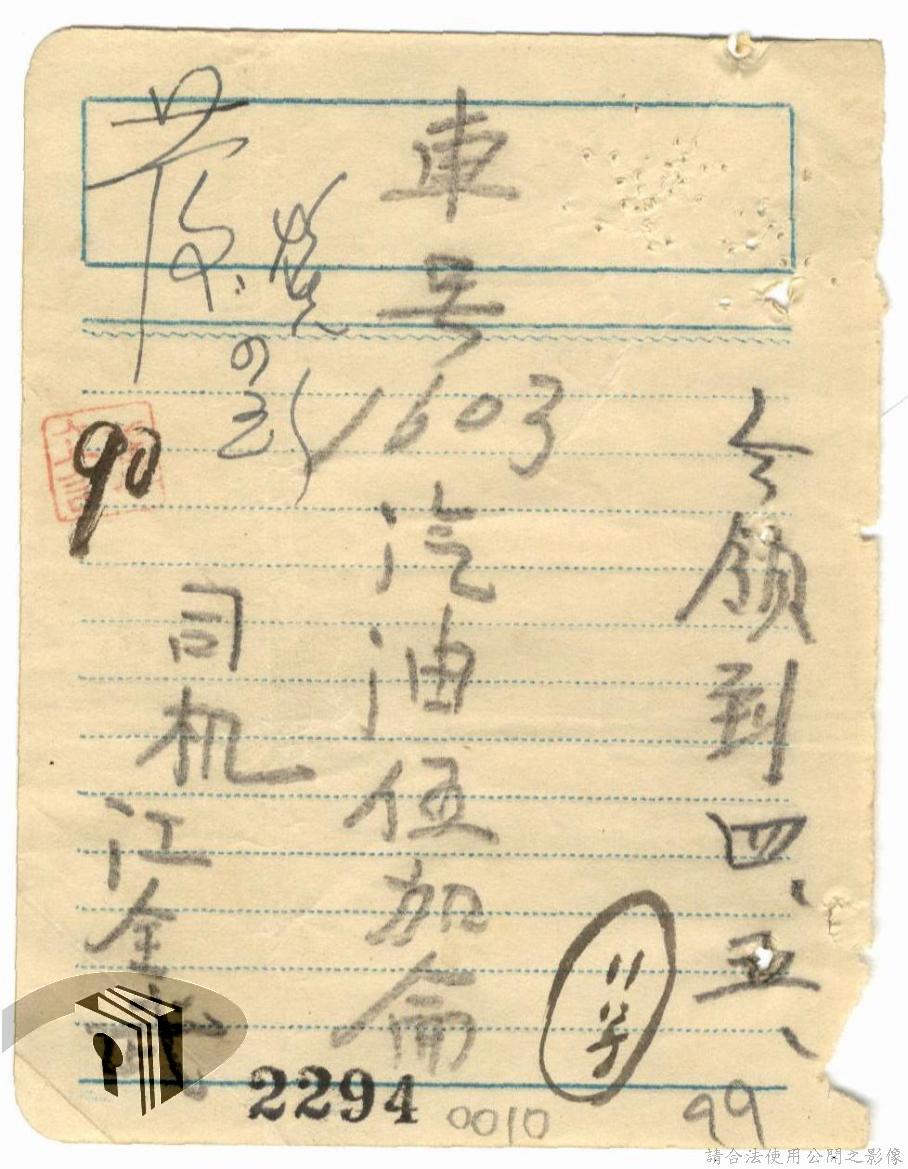 今領到四、五、
車号1603汽油伍加侖
司机江金
11号
90
2294
0010
99
請合法使用公開之影像